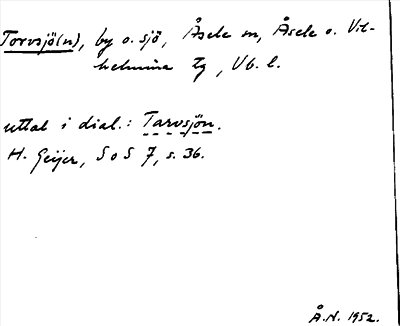 Torvsjö(n), by o. sjö, Åsele sn, Åsele o. Vil-
helmina tg, Vb. l.
uttal i dial.: Tarvsjön.
H. Geijer, SoS 7, s. 36.
Å.N. 1952.